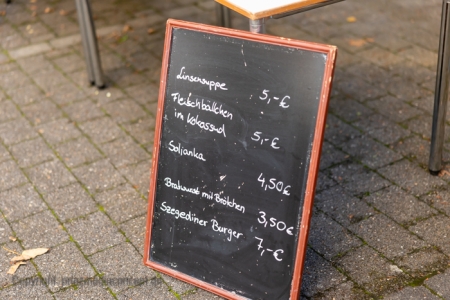 Linsensuppe 5,-€
Fleischbällchen
im Kokossud 5,-€
Soljanka 4,50€
Bratwurst mit Brötchen 3,50€
Szegediner Burger 7,-€